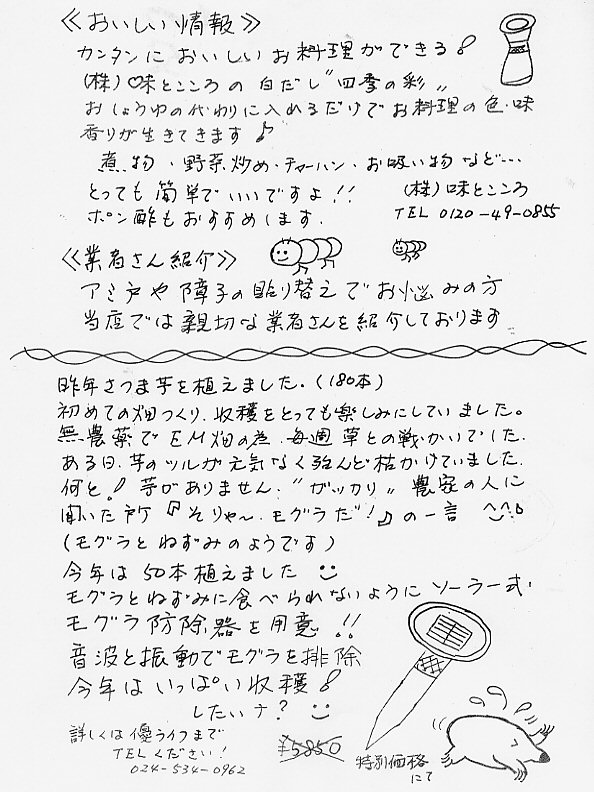 ≪おいしい情報≫
カンタンにおいしいお料理ができる!
(株)味とこころの白だし"四季の彩"
おしょうゆの代わりに入れるだけでお料理の色・味
香りが生きてきます♪
煮物・野菜炒め・チャーハン・お吸い物など…
とっても簡単でいいですよ!!
(株)味とこころ
ポン酢もおすすめします.
TEL 0120-49-0855
≪業者さん紹介≫
アミ戸や障子の貼り替えでお悩みの方
当店では親切な業者さんを紹介しております
昨年さつま芋を植えました.(180本)
初めての畑つくり.収穫をとっても楽しみにしていました。
無農薬でEM畑の為.毎週草との戦かいでした.
ある日.芋のツルが元気なく殆んど枯かけていました.
何と!芋がありません."ガッカリ"農家の人に
聞いた所『そりゃ〜.モグラだ!』の一言^^;
(モグラとねずみのようです)
今年は50本植えました
モグラとねずみに食べられないようにソーラー式・
モグラ防除器を用意!!
音波と振動でモグラを排除
今年はいっぱい収穫!
したいナ?
詳しくは優ライフまで
TELください!
024-534-0962
¥5850
特別価格
にて